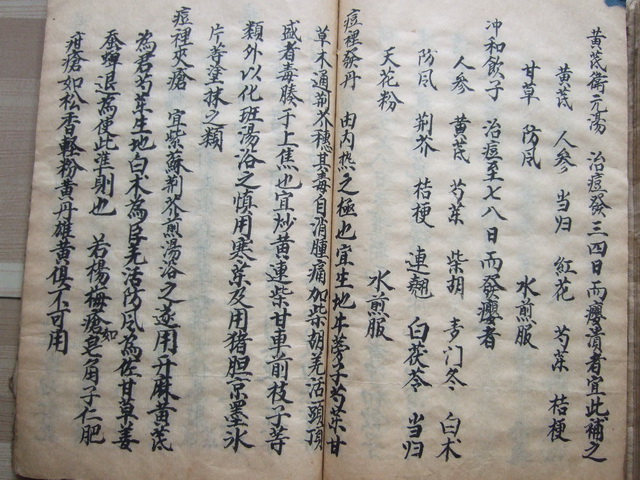 黄芪衛元湯 治痘發三四日而癢潰者宜此補之
黄芪 人參 当归 紅花 芍药 桔梗
甘草 防风 水煎服
冲和飲子 治痘至七八日而發癢者
人參 黄芪 芍药 柴胡 麦门冬 白术
防风 荆芥 桔梗 連翘 白茯苓 当归
天花粉 水煎服
痘裡發丹 由内热之極也宜生地牛蒡子芍药甘
草木通荆芥穗其毒自消腫痛加柴胡羌活頭頂
盛者毒腠于上焦也宜炒黄連柴甘車前枝子等
類外以化班湯浴之慎用寒药及用猪胆京墨水
片等塗抹之類
痘裡夾瘡 宜紫蘇荆芥煎湯浴之遂用升麻黄芪
為君芍药生地白术為臣羌活防风為佐甘草姜
蚕蟬退為使此準則也 若楊梅瘡如皂角子仁肥
疳瘡如松香輕粉黄丹雄黄俱不可用